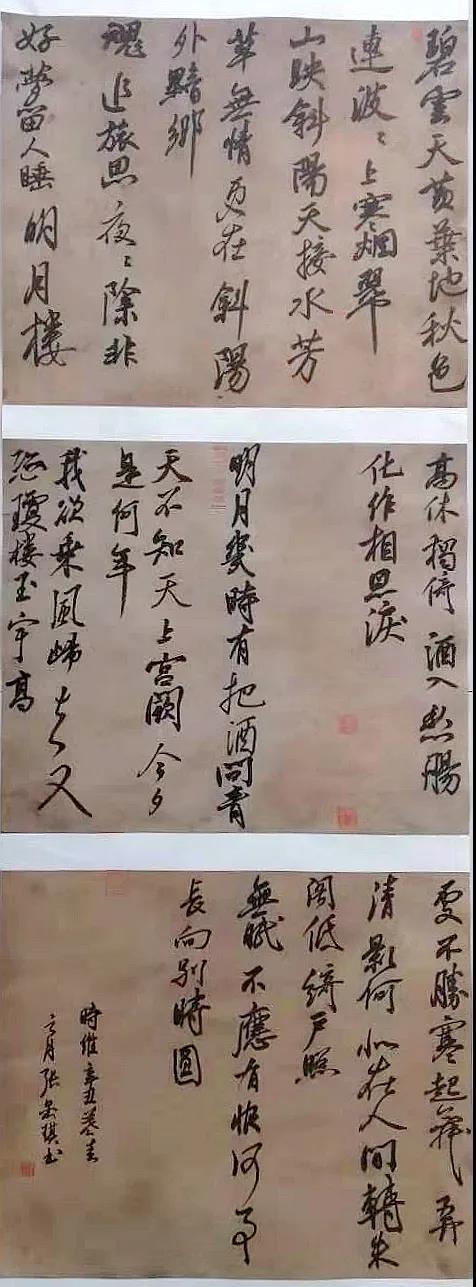 碧雲天黄葉地秋色
連波〻上寒烟翠
山映斜陽天接水芳
草無情更在斜陽
外黯鄉
魂追旅思夜〻除非
好夢留人睡明月樓
高休獨倚酒入愁腸
化作相思淚
明月幾時有把酒問青
天不知天上宫闕今夕
是何年
我欲乘風歸去又
恐瓊樓玉宇高
處不勝寒起舞弄
清影何似在人間轉朱
閣低綺戶照
無眠不應有恨何事
長向別時圓
時維辛丑暮春
月張琪书